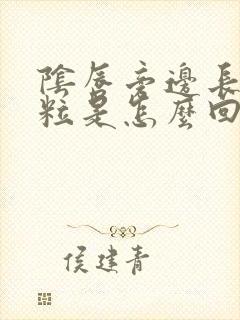 陰唇旁邊長
粒是怎麼回
侯建青